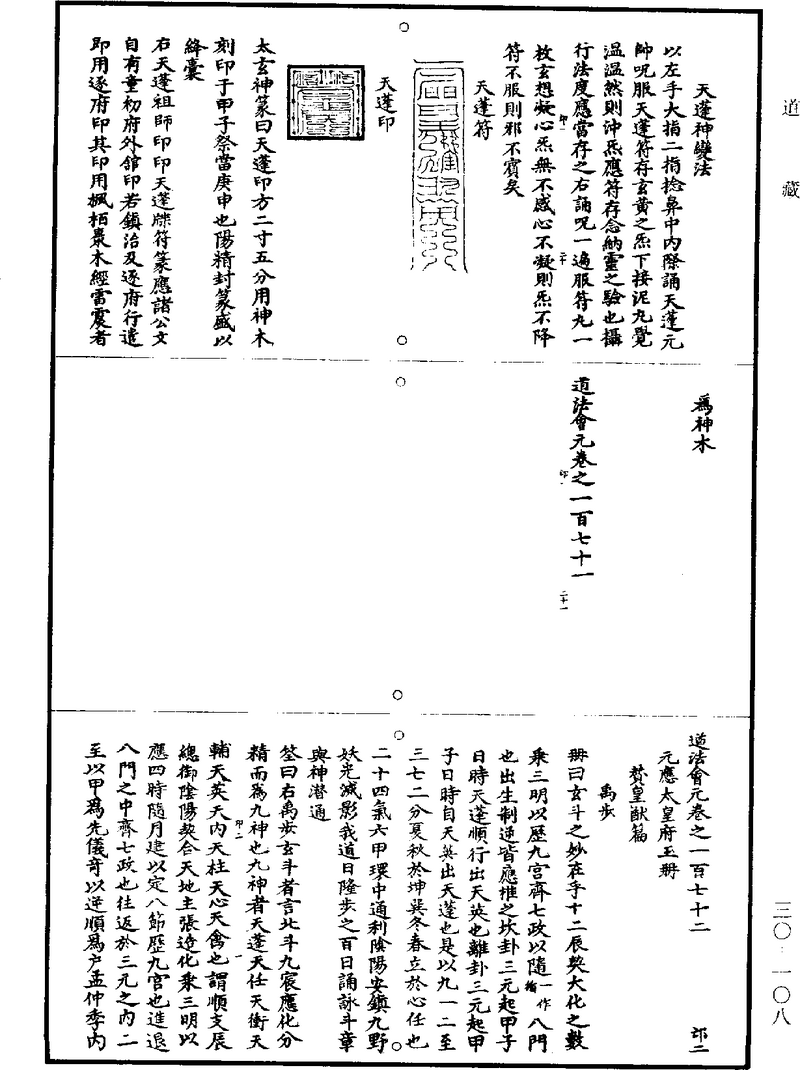 道藏
天蓬神變法
以左手大指二指捻鼻中內際誦天蓬元
帥呪服天蓬符存玄黃之炁下接泥丸覺
溫溫然則沖炁應符存念納靈之驗也攝
行法度應當存之右誦呪一遍服符九一
枚玄想凝心炁無不感心不凝則炁不降
符不服則邪不賓矣
天蓬符
天蓬印
太玄神篆曰天蓬印方二寸五分用神木
刻印于甲子祭當庚申也陽精封篆盛以
絳囊
右天蓬祖師印印天蓬牒符篆應諸公文
自有童初府外館印若鎮治及逐府行遣
即用逐府印其印用楓栢棗木經雷震者
爲神木
道法會元卷之一百七十一
道法會元卷之一百七十二
元應太皇府玉冊
贊皇猷篇
禹步
冊曰玄斗之妙在乎十二辰契大化之數
乘三明以歷九宮齊七政以隨一作八門
也出生制逆皆應推之坎卦三元起甲子
日時天蓬順行出天英也離卦三元起甲
子日時自天英出天蓬也是以九一二至
三七二分夏秋於坤巽冬春立於心任也
二十四氣六甲環中通利陰陽安鎮九野
妖光滅影我道日隆步之百日誦詠斗章
與神潛通
筌曰右禹步玄斗者言北斗九宸應化分
精而爲九神也九神者天蓬天任天衝天
輔天英天內天柱天心天禽也謂順支辰
總御陰陽契合天地主張造化乘三明以
應四時隨月建以定八節歷九宮也進退
八門之中齊七政也往返於三元之內二
至以甲爲先儀奇以逆順爲户孟仲季內
三〇·一〇八